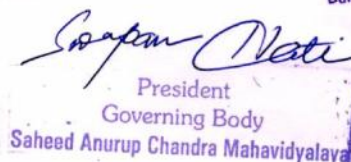 Swapan Nati
President
Governing Body
Saheed Anurup Chandra Mahavidyalaya